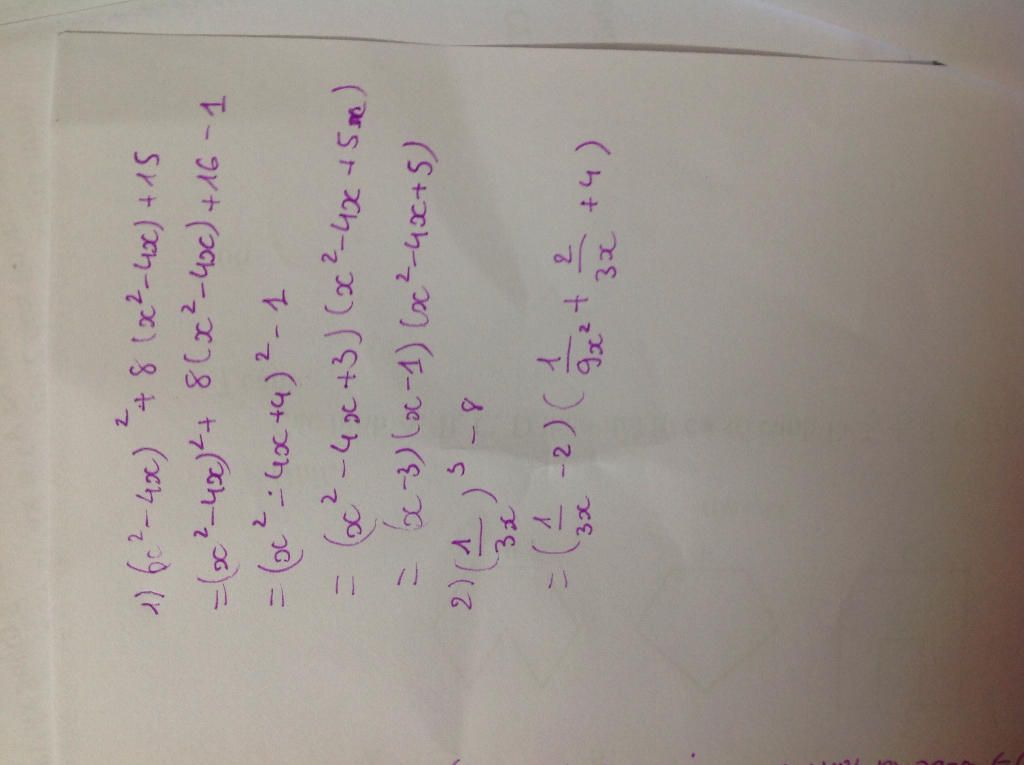 1) (x² - 4x)² + 8(x² - 4x) + 15
= (x² - 4x)² + 8(x² - 4x) + 16 - 1
= (x² - 4x + 4)² - 1
= (x² - 4x + 3)(x² - 4x + 5)
= (x - 3)(x - 1)(x² - 4x + 5)
2) (1/3x)³ - 8
= (1/3x - 2)(1/9x² + 2/3x + 4)